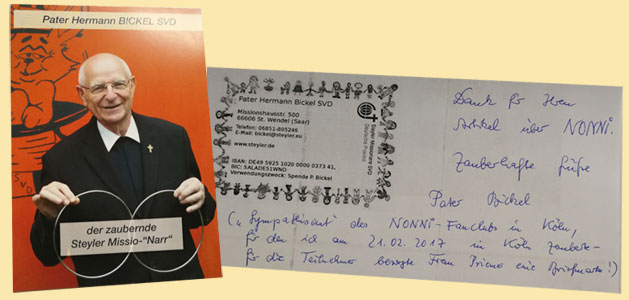 Pater Hermann BICKEL SVD
SVD
der zaubernde
Steyler Missio-"Narr"
Pater Hermann Bickel SVD
Missionshausstr. 500
66606 St. Wendel (Saar)
Telefon: 06851-805246
E-Mail: bickel@steyler.eu
www.steyler.de
IBAN: DE49 5925 1020 0000 0373 41,
BIC: SALADE51WND
Verwendungszweck: Spende P. Bickel
Steyler Missionare SVD
Deutsche Provinz
Dank für Ihren
Artikel über NONNI.
Zauberhafte Grüße
Pater Bickel
("Sympathisant" des NONNI-Fanclubs in Köln,
für den ich am 21.02.2017 in Köln zauberte-
für die Teilnehmer besorgte Frau Briemer eine Briefmarke!)